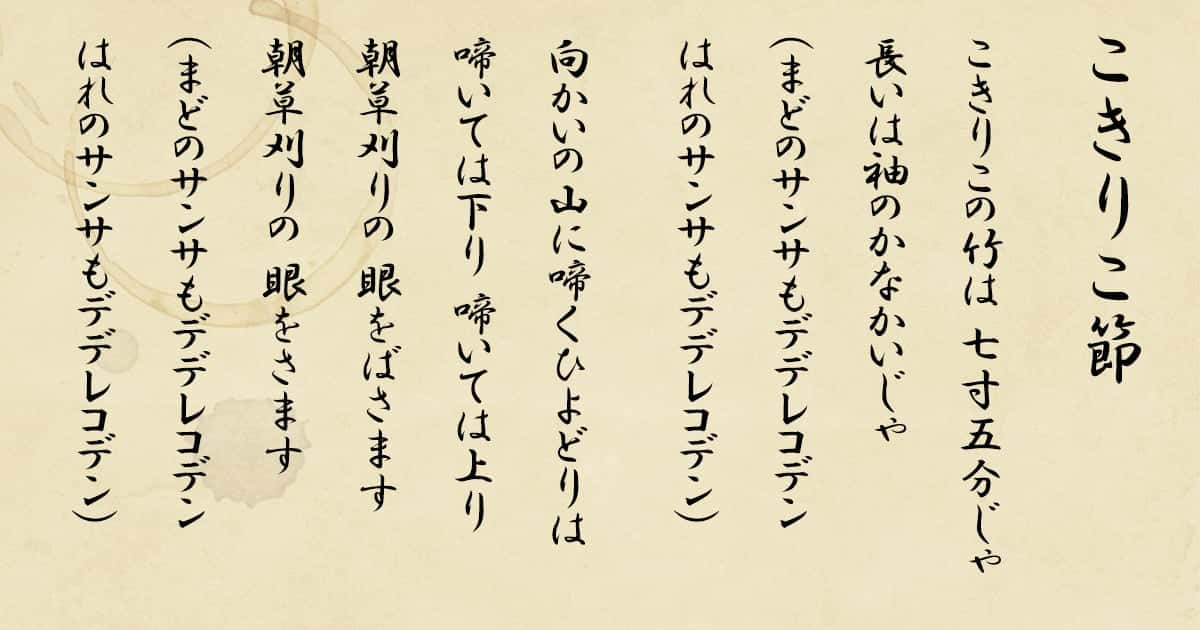 こきりこ節
こきりこの竹は 七寸五分じゃ
長いは袖のかなかいじゃ
（まどのサンサもデデレコデン
はれのサンサもデデレコデン）
向かいの山に啼くひよどりは
啼いては下り 啼いては上り
朝草刈りの 眼をばさます
朝草刈りの 眼をさます
（まどのサンサもデデレコデン
はれのサンサもデデレコデン）